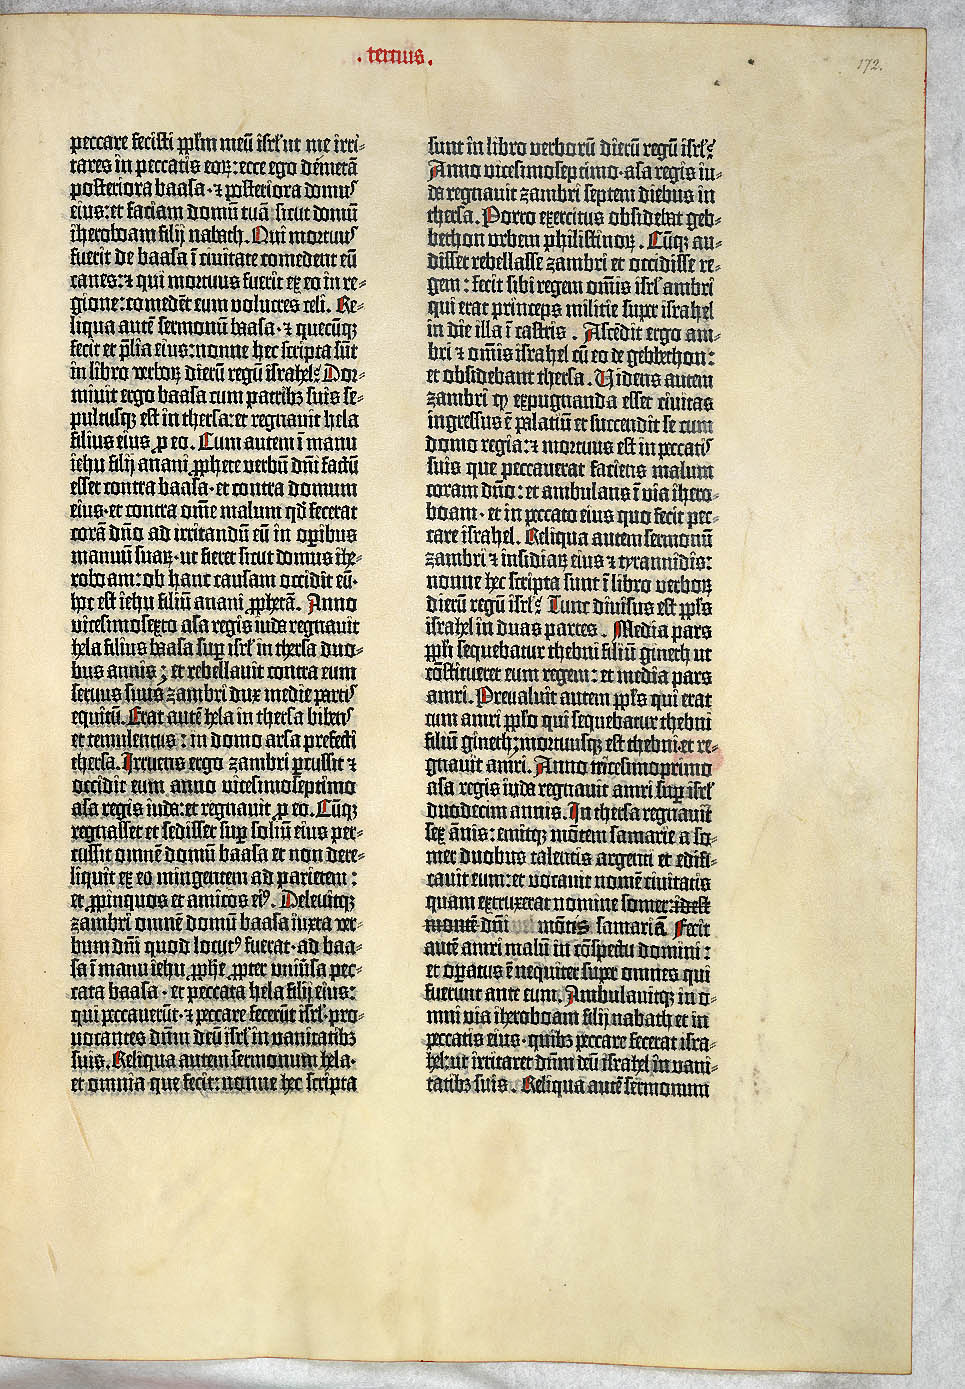 . tertius .
172.
peccare fecisti pp̄lm meū isrl̄ ut me irri-
tares in peccatis eoꝝ: ecce ego demetā
posteriora baasa · ⁊ posteriora domus
eius: et faciam domū tuā sicut domū
iheroboam filij nabath. Qui mortuus
fuerit de baasa ī civitate comedent eū
canes: ⁊ qui mortuus fuerit ex eo in re-
gione: comedēt eum volucres celi. Re-
liqua autē sermonū baasa · ⁊ quecūqꝫ
fecit et p̄lia eius: nonne hec scripta sūt
in libro verboꝝ dierū regū israhel? Dor-
mivit ergo baasa cum patribꝫ suis se-
pultusqꝫ est in thersa: et regnavit hela
filius eius ꝓ eo. Cum autem ī manu
iehu filij anani ꝓphete verbū dn̄i factū
esset contra baasa · et contra domum
eius · et contra om̄e malum qđ fecerat
corā dn̄o ad irritandū eū in oꝑibus
manuū suaꝝ · ut fieret sicut domus ihe-
roboam: ob hanc causam occidit eū ·
hoc est iehu filiū anani ꝓphetā. Anno
vicesimosexto asa regis iuda regnavit
hela filius baasa suꝑ isrl̄ in thersa duo-
bus annis; et rebellavit contra eum
servus suus zambri dux medie partis
equitū. Erat autē hela in thersa bibens
et temulentus: in domo arsa prefecti
thersa. Irruens ergo zambri ꝑcussit ⁊
occidit eum anno vicesimoseptimo
asa regis iuda: et regnavit ꝓ eo. Cūqꝫ
regnasset et sedisset suꝑ soliū eius per-
cussit omnē domū baasa et non dere-
liquit ex eo mingentem ad parietem:
et ꝓpinquos et amicos eiꝰ. Delevitqꝫ
zambri omnē domū baasa iuxta ver-
bum dn̄i quod locutꝰ fuerat · ad baa-
sa ī manu iehu ꝓphē ꝓpter univ̄sa pec-
cata baasa · et peccata hela filij eius:
qui peccaverūt · ⁊ peccare fecerūt isrl̄ · pro-
vocantes dn̄m deū isrl̄ in vanitatibꝫ
suis. Reliqua autem sermonum hela ·
et omnia que fecit: nonne hec scripta
sunt in libro verborū dierū regū isrl̄?
Anno vicesimoseptimo · asa regis iu-
da regnavit zambri septem diebus in
thersa. Porro exercitus obsidebat geb-
bethon urbem philistinoꝝ. Cūqꝫ au-
disset rebellasse zambri et occidisse re-
gem: fecit sibi regem om̄is isrl̄ ambri
qui erat princeps militie super israhel
in die illa ī castris. Ascēdit ergo am-
bri ⁊ om̄is israhel cū eo de gebbethon:
et obsidebant thersa. Videns autem
zambri ꝙ expugnanda esset civitas
ingressus ē palatiū et succendit se cum
domo regia: ⁊ mortuus est in peccatis
suis que peccaverat faciens malum
coram dn̄o: et ambulans ī via ihero-
boam · et in peccato eius quo fecit pec-
care israhel. Reliqua autem sermonū
zambri ⁊ insidiaꝝ eius ⁊ tyrannidis:
nonne hec scripta sunt ī libro verboꝝ
dierū regū isrl̄? Tunc divisus est pp̄ls
israhel in duas partes. Media pars
pp̄li sequebatur thebni filiū gineth ut
cōstitueret eum regem: et media pars
amri. Prevaluit autem pp̄ls qui erat
cum amri pp̄lo qui sequebatur thebni
filiū gineth; mortuusqꝫ est thebni · et re-
gnavit amri. Anno tricesimoprimo
asa regis iuda regnavit amri suꝑ isrl̄
duodecim annis. In thersa regnavit
sex ānis: emitqꝫ mōtem samarie a so-
mer duobus talentis argenti et edifi-
cavit eum: et vocavit nomē civitatis
quam extruxerat nomine somer: idest
montē dn̄i mōtis samariā Fecit
autē amri malū in cōspectu domini:
et oꝑatus ē nequiter super omnes qui
fuerunt ante eum. Ambulavitqꝫ in o-
mni via iheroboam filij nabath et in
peccatis eius · quibꝫ peccare fecerat isra-
hel: ut irritaret dn̄m deū israhel in vani-
tatibꝫ suis. Reliqua autē sermonum